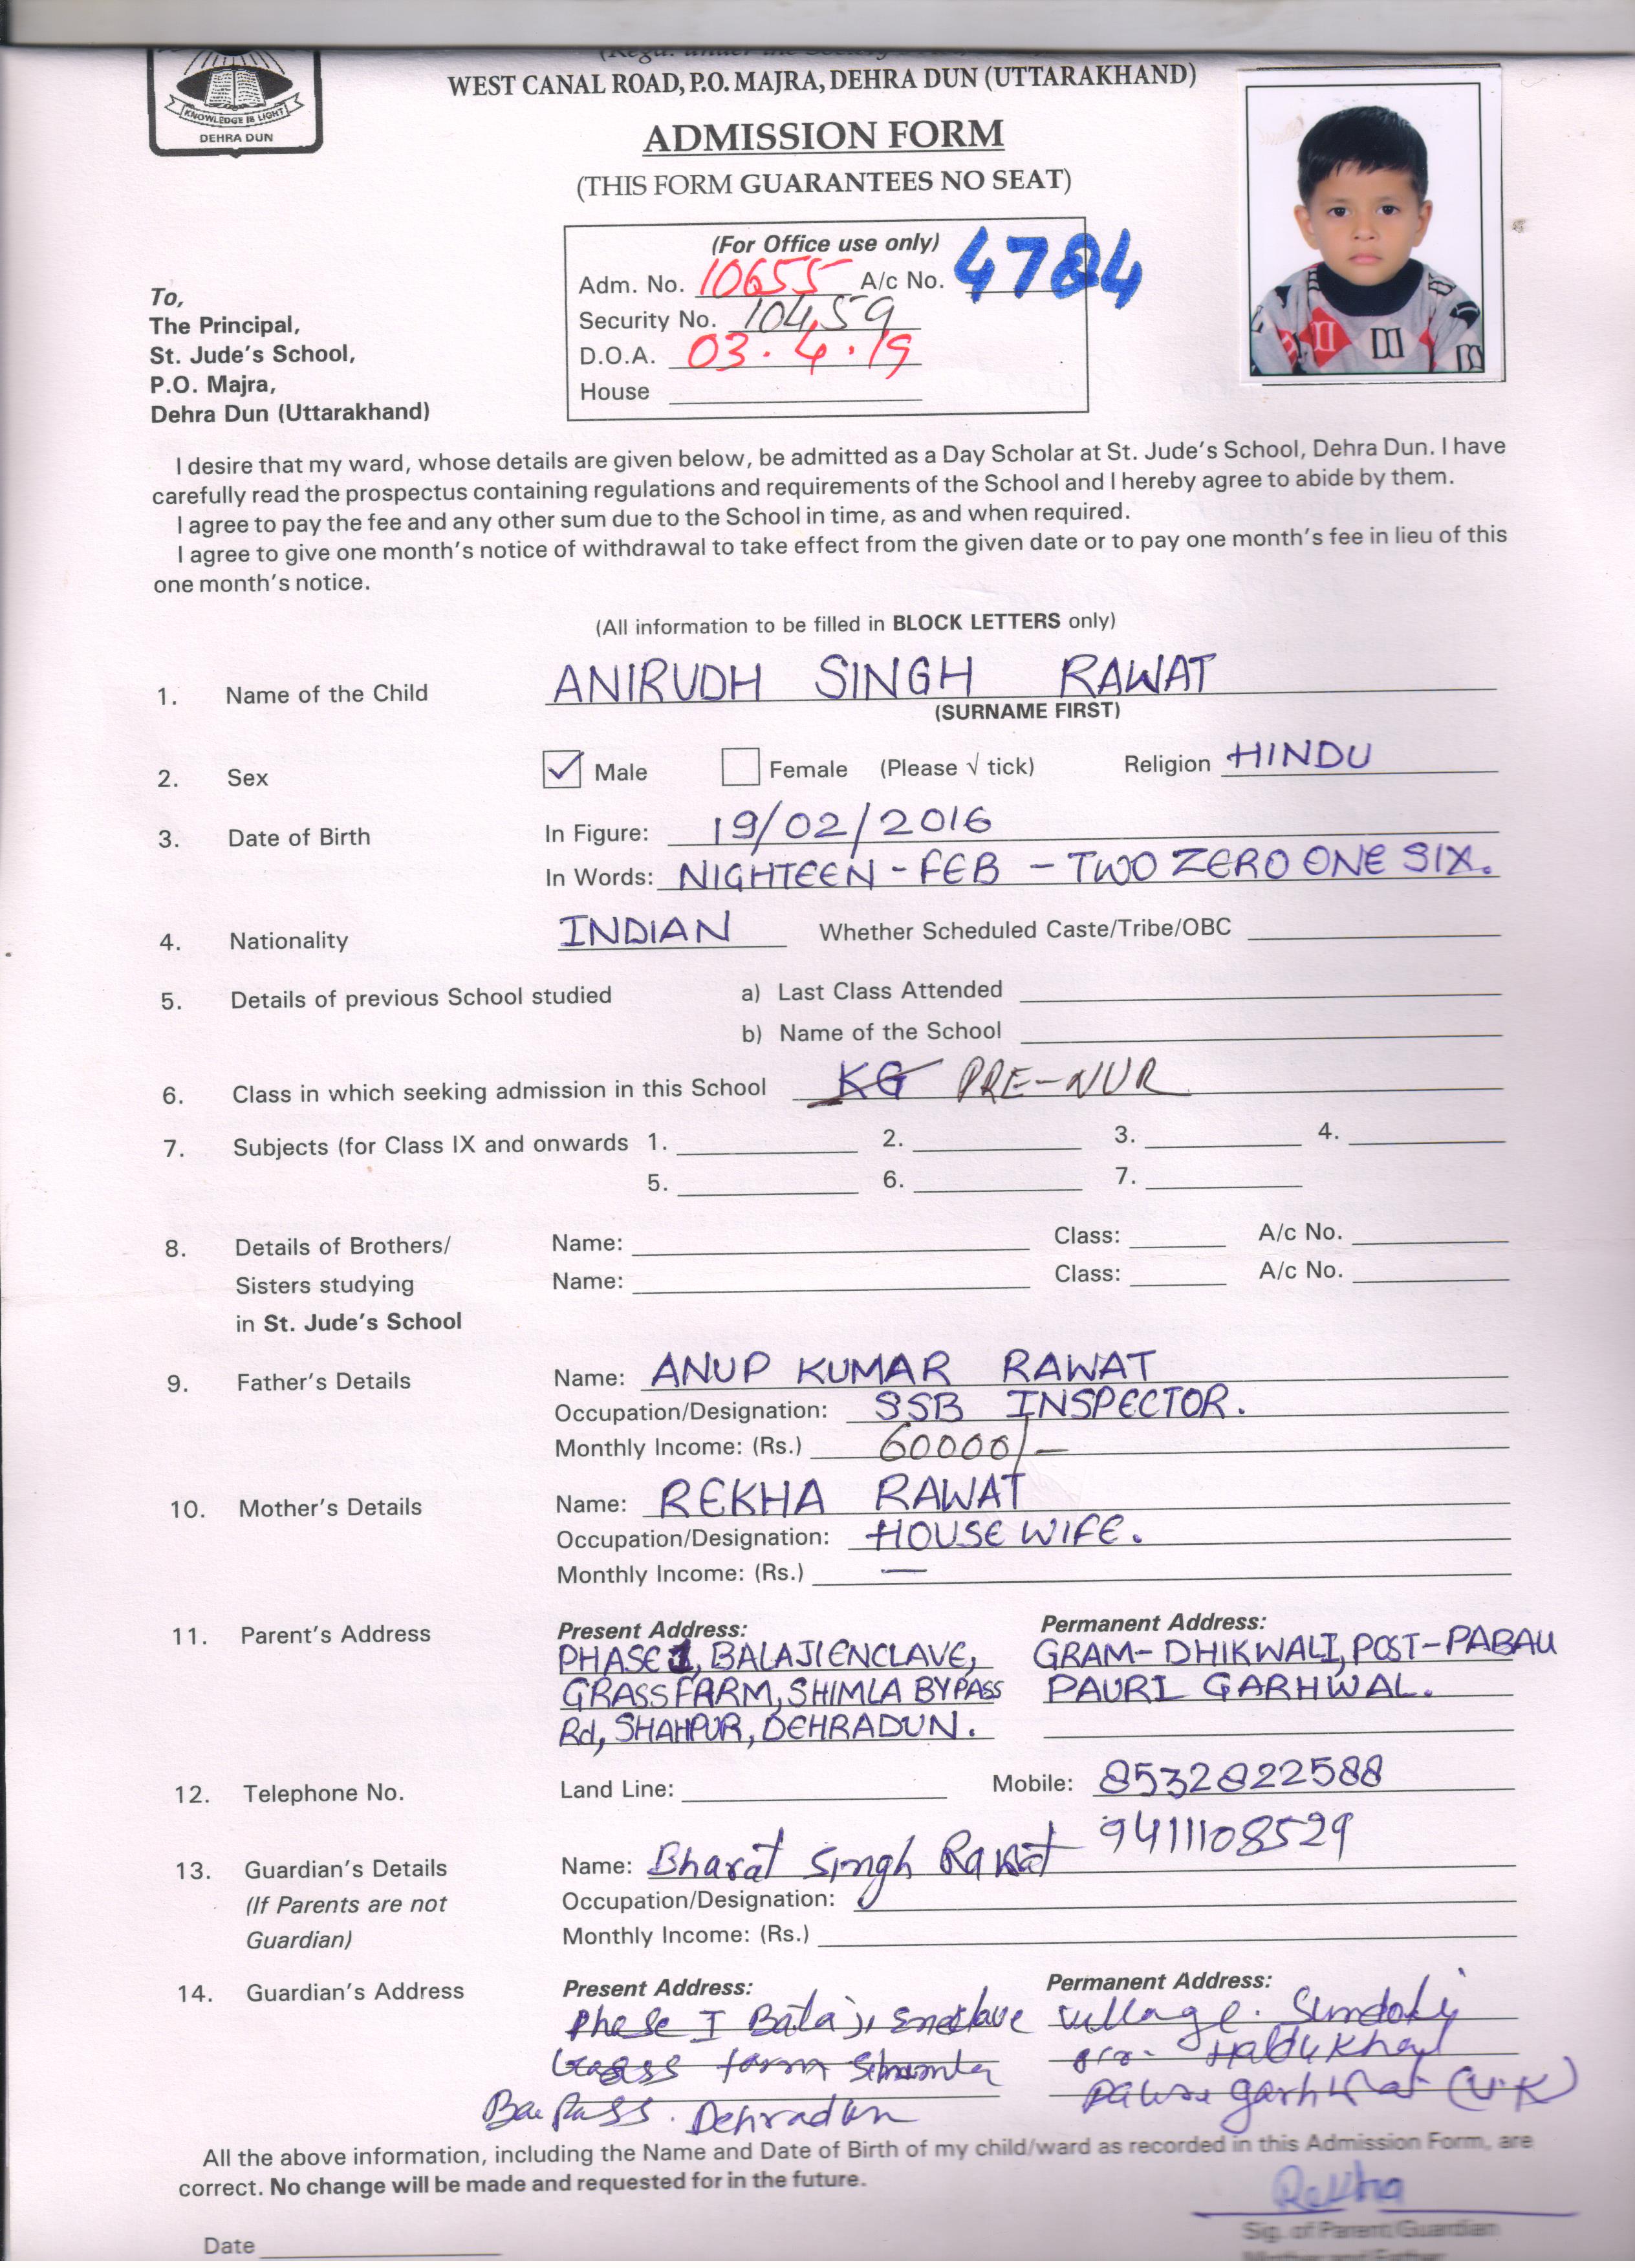 KNOWLEDGE IS LIGHT
DEHRA DUN
(Regd. under the Society
WEST CANAL ROAD, P.O. MAJRA, DEHRA DUN (UTTARAKHAND)
ADMISSION FORM
(THIS FORM GUARANTEES NO SEAT)
(For Office use only)
Adm. No. 10655 A/c No. 4784
Security No. 10459
D.O.A. 03.4.19
House
To,
The Principal,
St. Jude's School,
P.O. Majra,
Dehra Dun (Uttarakhand)
I desire that my ward, whose details are given below, be admitted as a Day Scholar at St. Jude's School, Dehra Dun. I have
carefully read the prospectus containing regulations and requirements of the School and I hereby agree to abide by them.
I agree to pay the fee and any other sum due to the School in time, as and when required.
I agree to give one month's notice of withdrawal to take effect from the given date or to pay one month's fee in lieu of this
one month's notice.
(All information to be filled in BLOCK LETTERS only)
1. Name of the Child ANIRUDH SINGH RAWAT
(SURNAME FIRST)
2. Sex Male Female (Please √ tick) Religion HINDU
3. Date of Birth In Figure: 19/02/2016
In Words: NIGHTEEN - FEB - TWO ZERO ONE SIX.
4. Nationality INDIAN Whether Scheduled Caste/Tribe/OBC
5. Details of previous School studied a) Last Class Attended
b) Name of the School
6. Class in which seeking admission in this School KG PRE-NUR
7. Subjects (for Class IX and onwards 1. 2. 3. 4.
5. 6. 7.
8. Details of Brothers/ Name: Class: A/c No.
Sisters studying Name: Class: A/c No.
in St. Jude's School
9. Father's Details Name: ANUP KUMAR RAWAT
Occupation/Designation: SSB INSPECTOR.
Monthly Income: (Rs.) 60000/-
10. Mother's Details Name: REKHA RAWAT
Occupation/Designation: HOUSE WIFE.
Monthly Income: (Rs.) —
11. Parent's Address Present Address: Permanent Address:
PHASE 1, BALAJI ENCLAVE, GRAM- DHIKWALI, POST-PABAU
GRASS FARM, SHIMLA BYPASS PAURI GARHWAL.
Rd, SHAHPUR, DEHRADUN.
12. Telephone No. Land Line: Mobile: 8532822588
9411108529
13. Guardian's Details Name: Bharat Singh Rawat
(If Parents are not Occupation/Designation:
Guardian) Monthly Income: (Rs.)
14. Guardian's Address Present Address: Permanent Address:
Phase I Balaji Enclave village.
farm Shimla
Dehradun (U.K)
All the above information, including the Name and Date of Birth of my child/ward as recorded in this Admission Form, are
correct. No change will be made and requested for in the future.
Rekha
Sig. of Parent/Guardian
Date